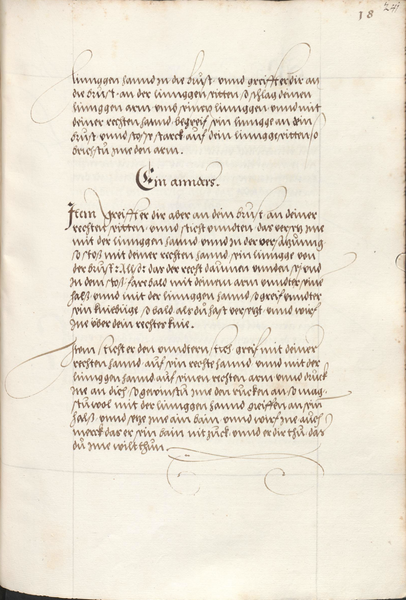 18
linnggen hannd in die brust vnnd greifft er dir an
die brust an der linnggen seitten so schlag deinen
linnggen arm vmb seinen linnggen vnnd mit
deiner rechten hannd begreif sein lingge an dein
brust vnnd starck auf dein linngge seitten so
brichstu jme den arm.
Ein annders.
Item Greifft er dir aber an dein brust an deiner
rechten seitten vnnd sticht vnndten das versetz jme
mit der linnggen hannd vnnd in der versatzung
so stoß mit deiner rechten hannd sein lingge von
der brust: Also: das der recht daumen vnnden sey vnd
in dem stoß far bald mit deinem arm vnndter seine
halß vnnd mit der linnggen hannd so greif vnndter
sein kniebüge so bald als du hast versetzt vnnd wirf
jne über dein rechte knie.
Item sticht er den vnndtern stich greif mit deiner
rechten hannd auf sein rechte hannd vnnd mit der
linnggen hannd auf seinen rechten arm vnnd druck
jne an dich so gewinstu jme den rucken an so mag-
stu wol mit der linnggen hannd greiffen an sein
halß vnnd setze jme ain bain vnnd wirf jne auch
merck das er sein bain nit zuck vnnd er dir thu das
du jme wilt thun.